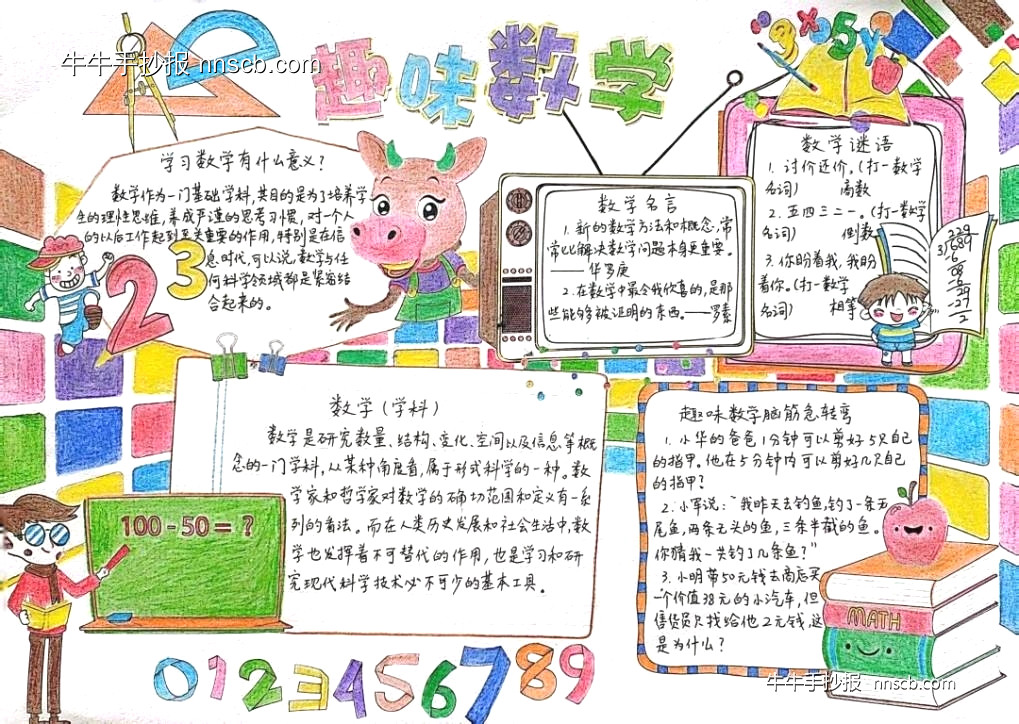 牛牛手抄报 nnscb.com
趣味数学
学习数学有什么意义?
数学作为一门基础学科,其目的是为了培养学
生的理性思维,养成严谨的思考习惯,对一个人
的以后工作起到至关重要的作用,特别是在信
息时代,可以说,数学与任
何科学领域都是紧密结
合起来的。
2
3
数学名言
1.新的数学方法和概念,常
常比解决数学问题本身更重要。
——华罗庚
2.在数学中最令我欣喜的,是那
些能够被证明的东西。——罗素
9x5y
数学谜语
1.讨价还价。(打一数学
名词) 商数
2.五四三二一。(打一数学
名词) 倒数
3.你盼着我,我盼
着你。(打一数学
名词) 相等
229
3√689
6
08
29
27
2
数学(学科)
数学是研究数量、结构、变化、空间以及信息等概
念的一门学科,从某种角度看,属于形式科学的一种。数
学家和哲学家对数学的确切范围和定义有一系
列的看法。而在人类历史发展和社会生活中,数
学也发挥着不可替代的作用,也是学习和研
究现代科学技术必不可少的基本工具。
100-50=?
趣味数学脑筋急转弯
1.小华的爸爸1分钟可以剪好5只自己
的指甲。他在5分钟内可以剪好几只自己
的指甲?
2.小军说:“我昨天去钓鱼,钓了一条无
尾鱼,两条无头的鱼,三条半截的鱼。
你猜我一共钓了几条鱼?”
3.小明带50元钱去商店买
一个价值38元的小汽车,但
售货员只找给他2元钱,这
是为什么?
MATH
0123456789
牛牛手抄报 nnscb.com